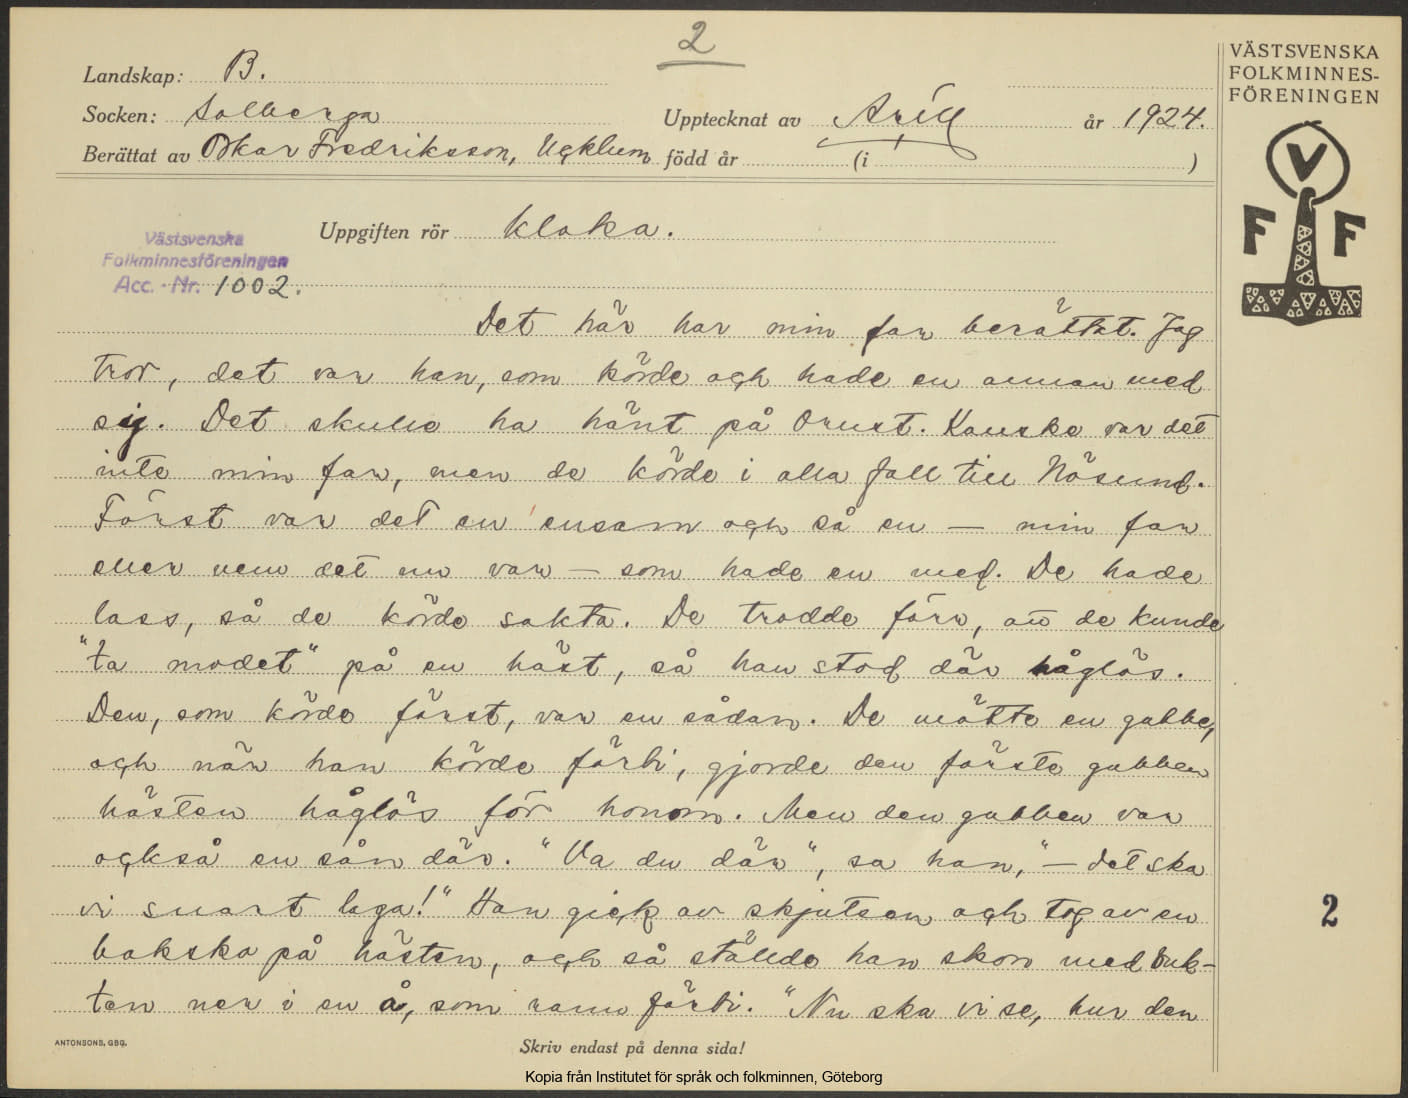 2
Landskap: B.
Socken: Solberga
Upptecknat av Arill år 1924.
Berättat av Oskar Fredriksson, Ucklum född år (i )
VÄSTSVENSKA
FOLKMINNES-
FÖRENINGEN
V
F F
Uppgiften rör Kloka.
Västsvenska
Folkminnesföreningen
Acc. - Nr. 1002.
Det här har min far berättat. Jag
tror, det var han, som körde och hade en annan med
sig. Det skulle ha hänt på Orust. Kanske var det
inte min far, men de körde i alla fall till Nösund.
Först var det en ensam och så en — min far
eller vem det nu var — som hade en med. De hade
lass, så de körde sakta. De trodde förr, att de kunde
"ta modet" på en häst, så han stod där håglös.
Den, som körde först, var en sådan. De mötte en gubbe,
och när han körde förbi, gjorde den förste gubben
hästen håglös för honom. Men den gubben var
också en sån där. "Va du där", sa han, "— det ska
vi snart laga!" Han gick av skjutsen och tog av en
baksko på hästen, och så ställde han skon med buk-
ten ner i en å, som rann förbi. "Nu ska vi se, hur den
2
ANTONSONS, GBG.
Skriv endast på denna sida!
Kopia från Institutet för språk och folkminnen, Göteborg